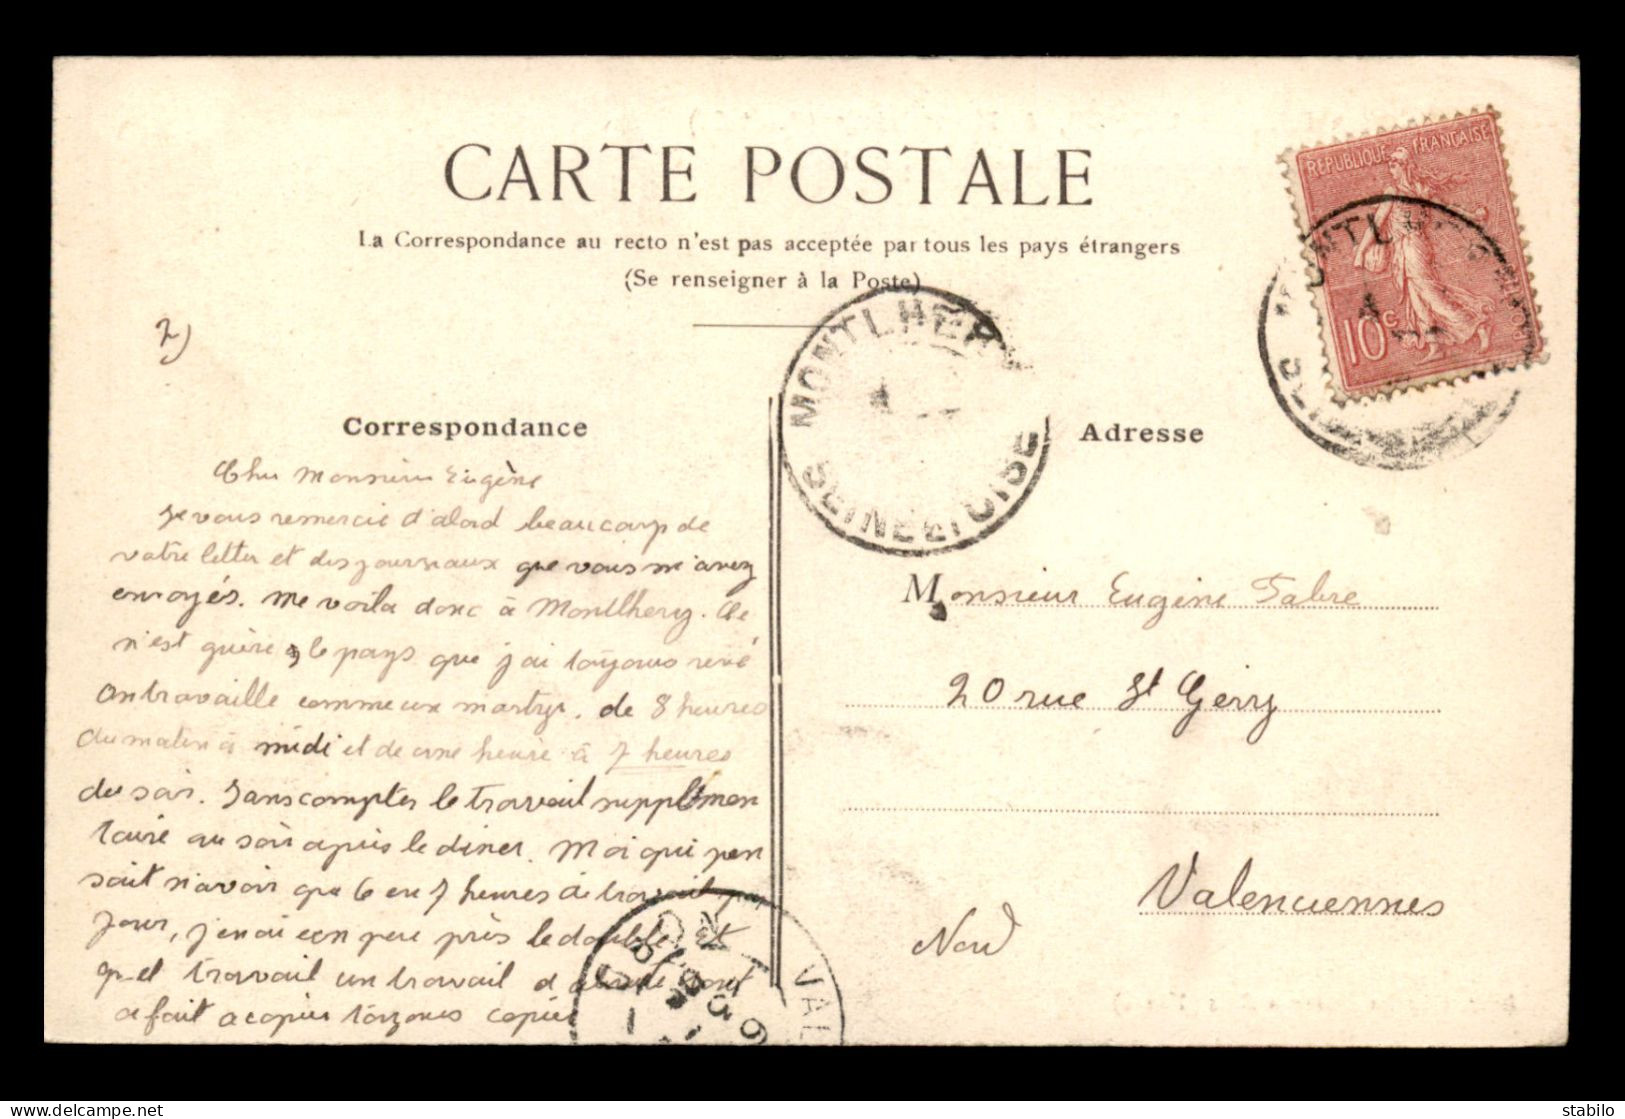 CARTE POSTALE
La Correspondance au recto n'est pas acceptée par tous les pays étrangers
(Se renseigner à la Poste)
REPUBLIQUE FRANÇAISE
10c
MONTLHERY
SEINE ET OISE
2)
Correspondance
Cher Monsieur Eugène
Je vous remercie d'abord beaucoup de
votre letter et des journaux que vous m'avez
envoyés. Me voila donc à Montlhery. Ce
n'est guère le pays que j'ai toujours revé
On travaille comme un martyr. de 8 heures
du matin à midi et de une heure à 7 heures
du soir. Sans compter le travail supplémen
taire au soir après le diner. Moi qui pen
sait n'avoir que 6 ou 7 heures de travail par
jour, j'en ai eu peu près le double. Et
quel travail un travail d tout
a fait a copier toujours copier
Adresse
Monsieur Eugène Fabre
20 rue St Gery
Valenciennes
Nord
VAL
stabilo | delcampe.net